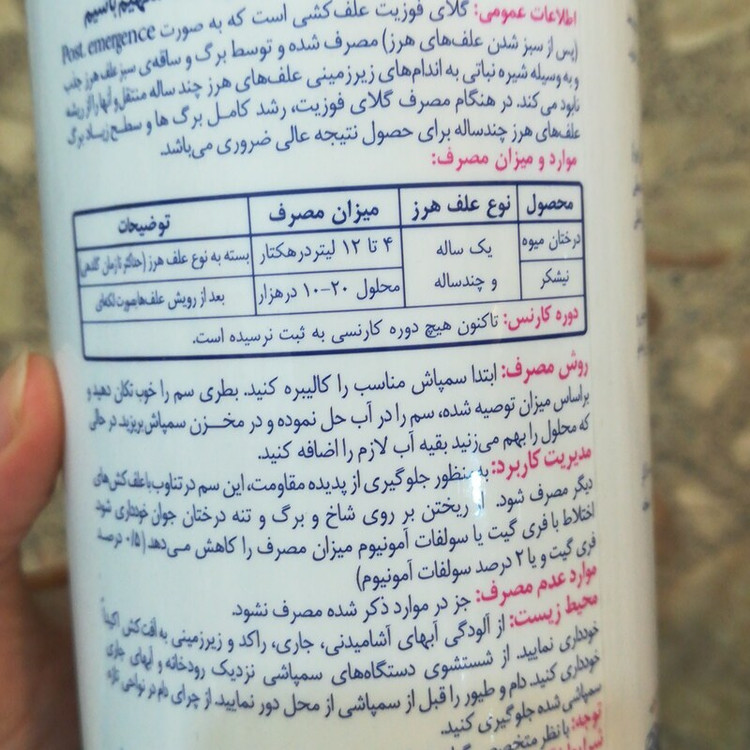 اطلاعات عمومی: گلای فوزیت علف‌کشی است که به صورت Post. emergence
(پس از سبز شدن علف‌های هرز) مصرف شده و توسط برگ و ساقه‌ی سبز علف هرز جذب
و به وسیله شیره نباتی به اندام‌های زیرزمینی علف‌های هرز چند ساله منتقل و آنها را از ریشه
نابود می‌کند. در هنگام مصرف گلای فوزیت، رشد کامل برگ ها و سطح زیاد برگ
علف‌های هرز چندساله برای حصول نتیجه عالی ضروری می‌باشد.
موارد و میزان مصرف:
محصول نوع علف هرز میزان مصرف توضیحات
درختان میوه یک ساله ۴ تا ۱۲ لیتر در هکتار بسته به نوع علف هرز (حداکثر تا زمان گلدهی)
نیشکر و چندساله محلول ۲۰-۱۰ در هزار بعد از رویش علف‌ها بصورت لکه‌ای
دوره کارنس: تاکنون هیچ دوره کارنسی به ثبت نرسیده است.
روش مصرف: ابتدا سمپاش مناسب را کالیبره کنید. بطری سم را خوب تکان دهید و
براساس میزان توصیه شده، سم را در آب حل نموده و در مخزن سمپاش بریزید. در حالی
که محلول را بهم می‌زنید بقیه آب لازم را اضافه کنید.
مدیریت کاربرد: به منظور جلوگیری از پدیده مقاومت، این سم در تناوب با علف کش‌های
دیگر مصرف شود. از ریختن بر روی شاخ و برگ و تنه درختان جوان خودداری شود
اختلاط با فری گیت یا سولفات آمونیوم میزان مصرف را کاهش می‌دهد (۰/۵ درصد
فری گیت و یا ۲ درصد سولفات آمونیوم)
موارد عدم مصرف: جز در موارد ذکر شده مصرف نشود.
محیط زیست: از آلودگی آبهای آشامیدنی، جاری، راکد و زیرزمینی به آفت کش اکیداً
خودداری نمایید. از شستشوی دستگاه‌های سمپاشی نزدیک رودخانه و آبهای جاری
خودداری کنید. دام و طیور را قبل از سمپاشی از محل دور نمایید. از چرای دام در نواحی تازه
سمپاشی شده جلوگیری کنید.
توجه: با نظر متخصص